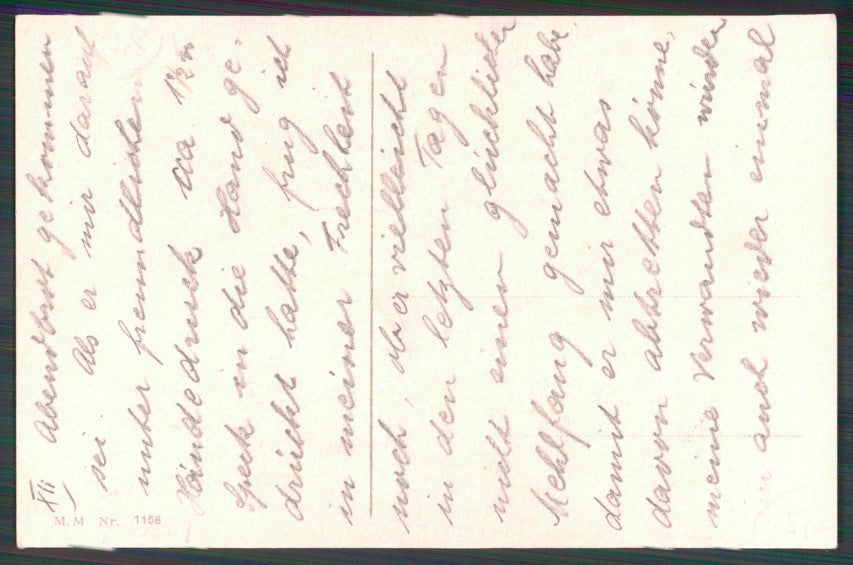 XII. Abendbrot gekommen
sei. Als er mir darauf
unter freundlichem
Händedruck ca 1½ ℔
Speck in die Hand ge-
drückt hatte, frug ich
in meiner Frechheit
noch, ob er vielleicht
in den letzten Tagen
nicht einen glücklichen
Mehlfang gemacht habe,
damit er mir etwas
davon abtretten könne,
meine Verwandten würden
auch wieder einmal
M. M Nr. 1158